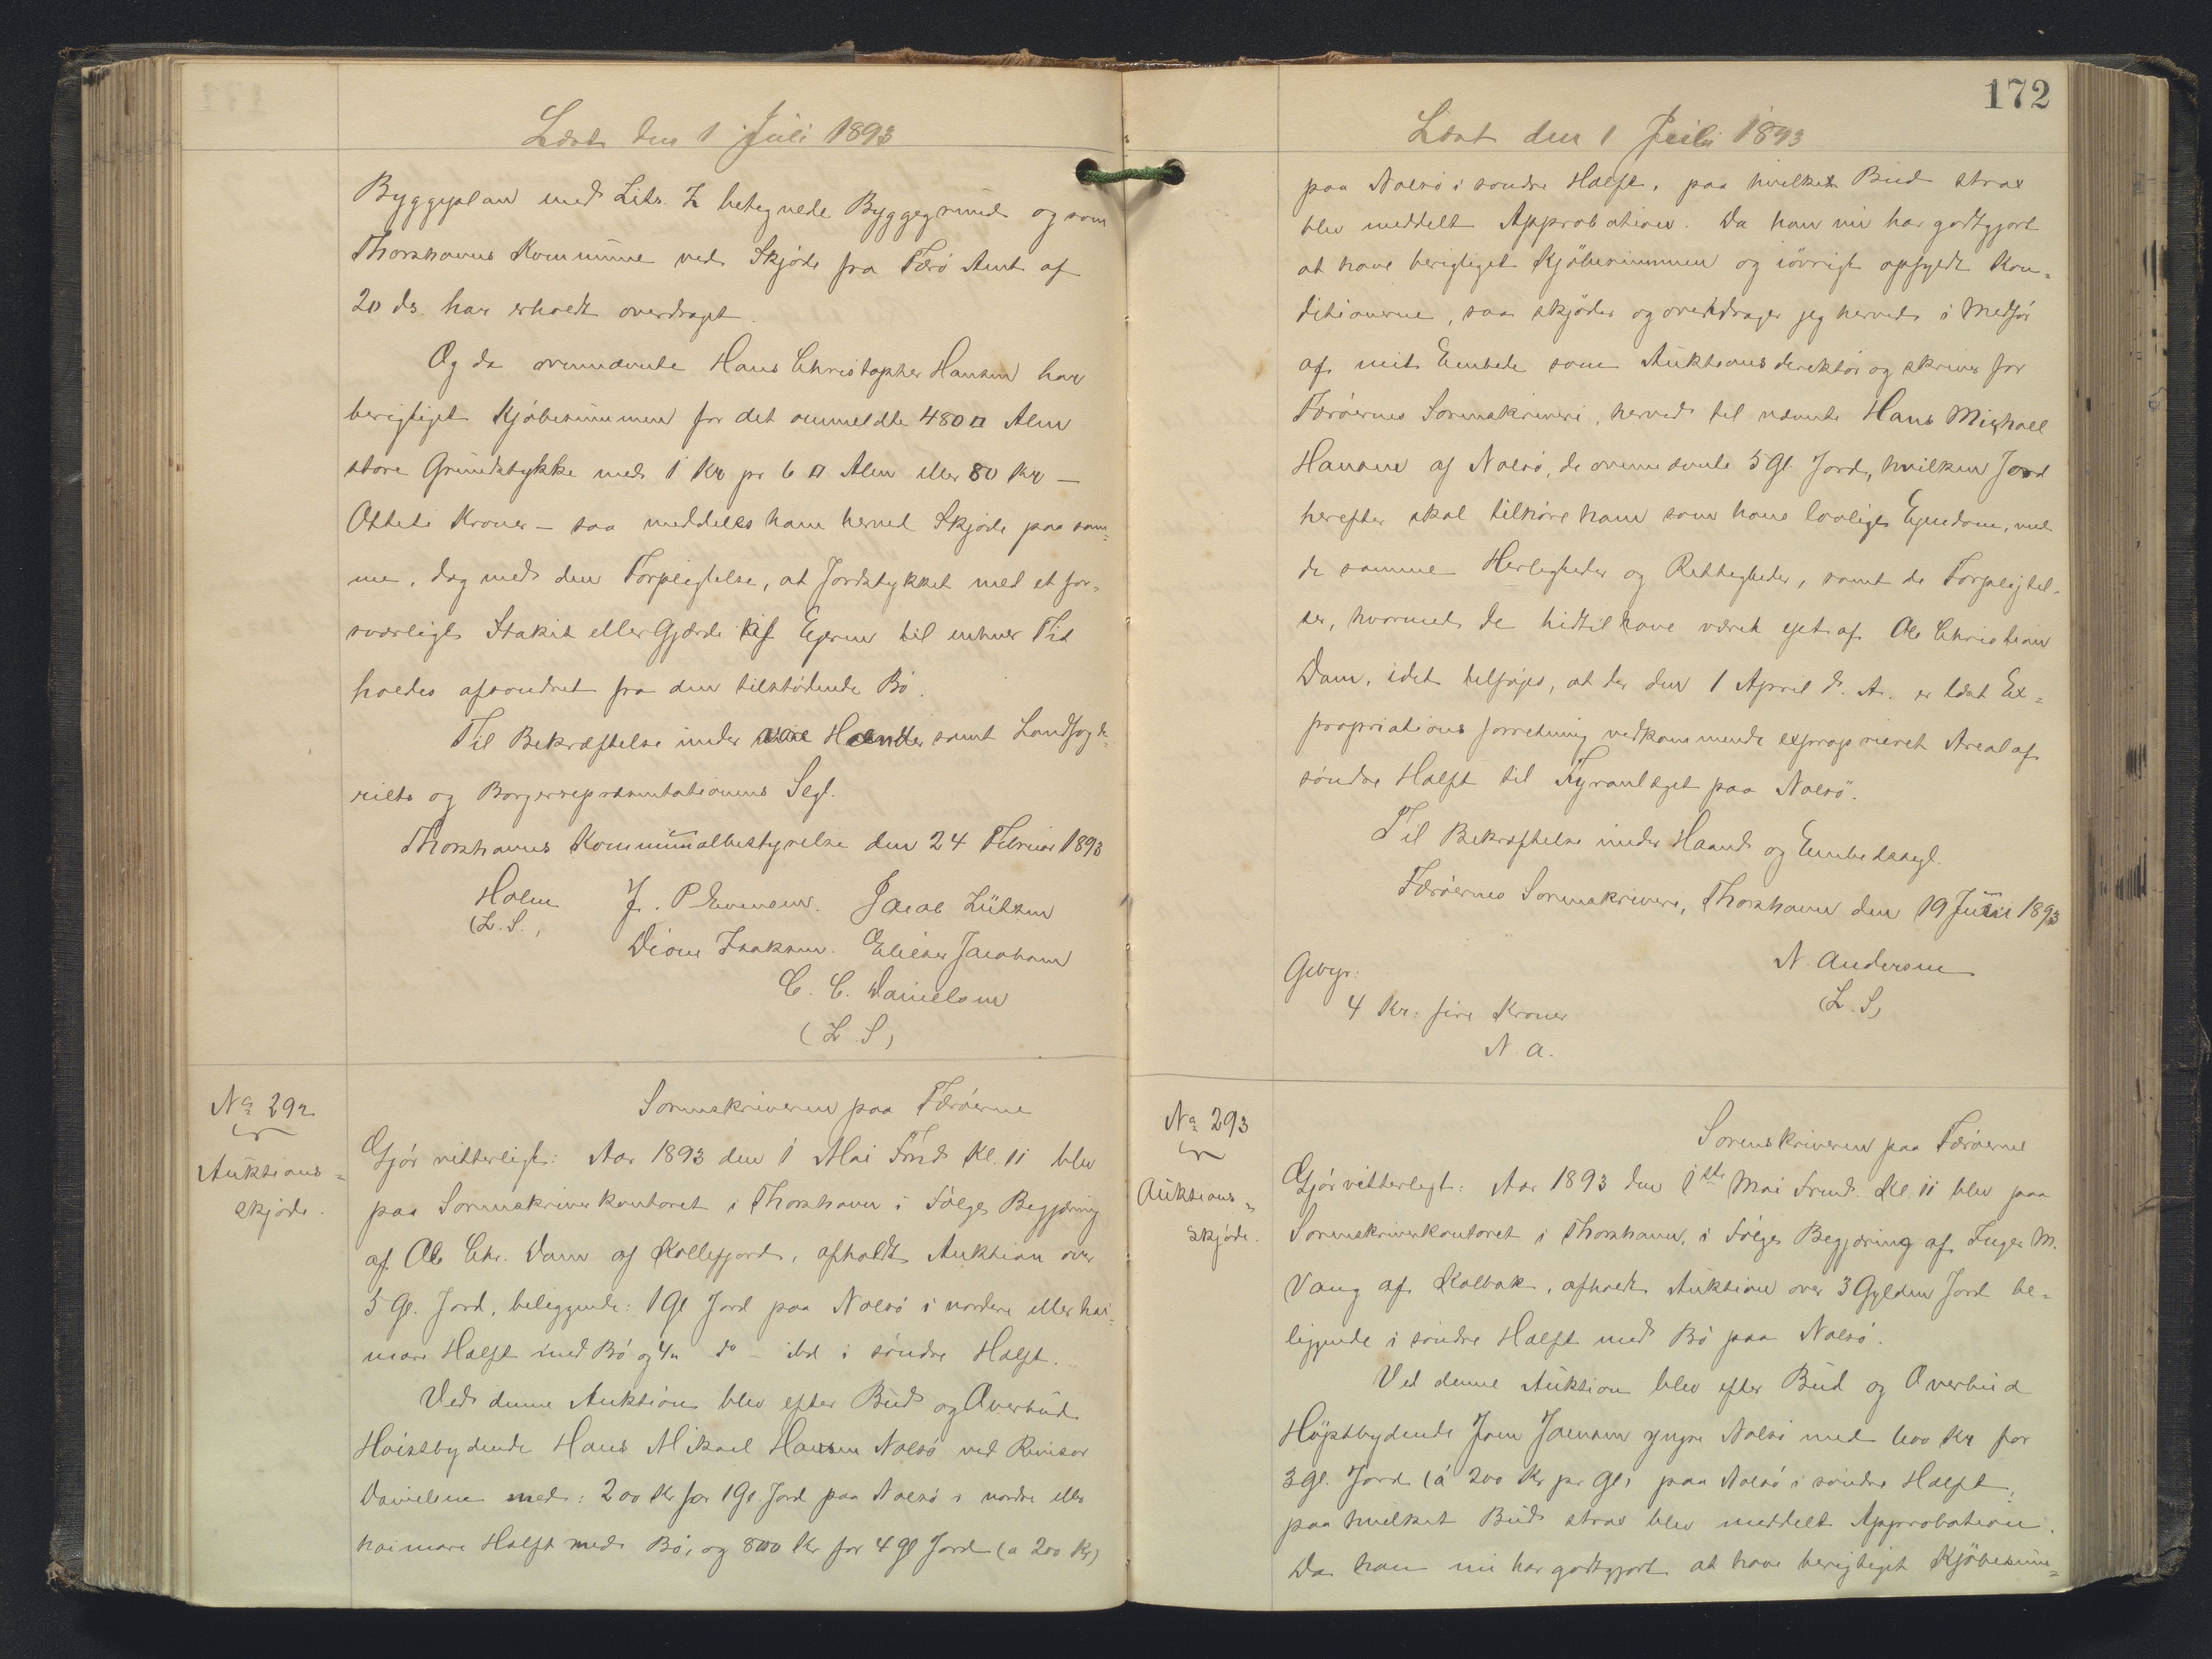 Læst den 1 Juli 1893
Byggeplan med Litr. Z betegnede Byggegrund og som
Thorshavns Kommune ved Skjöde fra Færö Amt af
20 ds. har erholdt overdraget.
Og da ovennævnte Hans Christopher Hansen har
berigtiget Kjöbesummen for det ommeldte 480 □ Alen
store Grundstykke med 1 Kr pr 6 □ Alen eller 80 Kr —
Otteti Kroner — saa meddeles ham herved Skjöde paa sam=
me, dog med den Forpligtelse, at Jordstykket med et for=
svarligt Stakit eller Gjærde af Ejeren til enhver Tid
holdes afsondret fra den tilstödende Bö.
Til Bekræftelse under vore Hænder samt Landfogde=
riets og Borgerrepræsentationens Segl.
Thorshavns Kommunalbestyrelse den 24 Februar 1893
Holm J. P Evensen. Jacob Lützen
(L.S.) Dione Isaksen. Elieser Jacobsen
C. C. Danielsen
(L.S)
No 292
Auktions=
skjöde.
Sorenskriveren paa Færöerne
Gjör vitterligt: Aar 1893 den 1 Mai Fmd. Kl. 11 blev
paa Sorenskriverkontoret i Thorshavn i Fölge Begjæring
af Ole Chr. Dam af Kollefjord, afholdt Auktion over
5 Gl. Jord, beliggende: 1 Gl Jord paa Nolsö i nordre eller hai=
mare Halft med Bö og 4 " do - ibd i söndre Halft.
Ved denne Auktion blev efter Bud og Overbud
Höistbydende Hans Mikael Hansen Nolsö ved Revisor
Danielsen med: 200 Kr for 1 Gl. Jord paa Nolsö i nordre eller
haimare Halft med Bö, og 800 Kr for 4 gl Jord (a 200 Kr)
172
Læst den 1 Juli 1893
paa Nolsö i söndre Halft, paa hvilket Bud strax
blev meddelt Approbation. Da han nu har godtgjort
at have berigtiget Kjöbesummen og iövrigt opfyldt Kon=
ditionerne, saa skjöder og overdrager jeg herved i Medför
af mit Embede som Auktionsdirektör og skriver for
Færöernes Sorenskriveri, herved til nævnte Hans Michael
Hansen af Nolsö, de ovennævnte 5 Gl. Jord, hvilken Jord
herefter skal tilhöre ham som hans lovlige Ejendom, med
de samme Herligheder og Rettigheder, samt de Forpligtel=
ser, hvormed de hidtil have været ejet af Ole Christian
Dam, idet tilföjes, at der den 1 April d. A. er læst Ex=
propriations forretning vedkommende exproprieret Areal af
söndre Halft til Fyranlæget paa Nolsö.
Til Bekræftelse under Haand og Embedssegl.
Færöernes Sorenskriveri, Thorshavn den 19 Juni 1893
N. Andersen
(L.S)
Gebyr:
4 Kr: fire Kroner
N. A.
No 293
Auktions=
skjöde.
Sorenskriveren paa Færöerne
Gjör vitterligt: Aar 1893 den 1ste Mai Frmd. Kl. 11 blev paa
Sorenskriverkontoret i Thorshavn, i Fölge Begjæring af Inger M.
Vang af Kalbak, afholdt Auktion over 3 Gylden Jord be=
liggende i söndre Halft med Bö paa Nolsö.
Ved denne Auktion blev efter Bud og Overbud
Höjstbydende Joen Joensen yngre Nolsö med 600 Kr for
3 gl. Jord (á 200 Kr pr gl) paa Nolsö i söndre Halft,
paa hvilket Bud strax blev meddelt Approbation.
Da han nu har godtgjort at have berigtiget Kjöbesum=